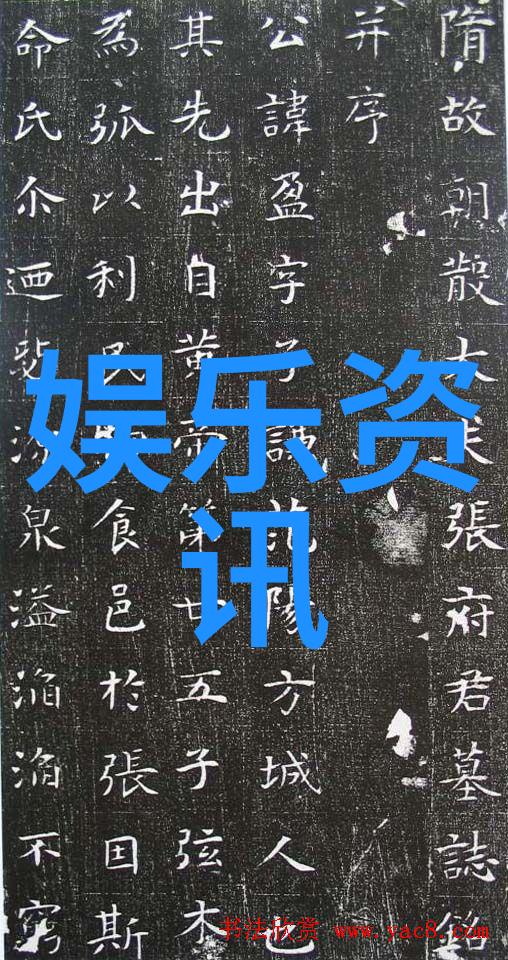 隋故朝散大夫張府君墓誌銘
并序
公諱盈字子謙范陽方城人也
其先出自黄帝第廿五子弦木
為弧以利民食邑於張因斯
命氏尒迺泉溢滔滔不窮
娱乐资
讯
书法欣赏 www.yac8.com